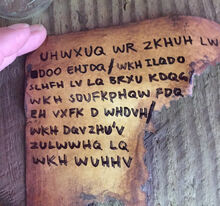 UHWXUQ WR ZKHUH LW
DOO EHJDQ/ WKH ILQDO
SLHFH LV LQ BRXU KDQG/
WKH SDUFKPHQW FDQ
EH VXFK D WHDVH/
WKH DQVZHU'V
ZULWWHQ LQ
WKH WUHHV